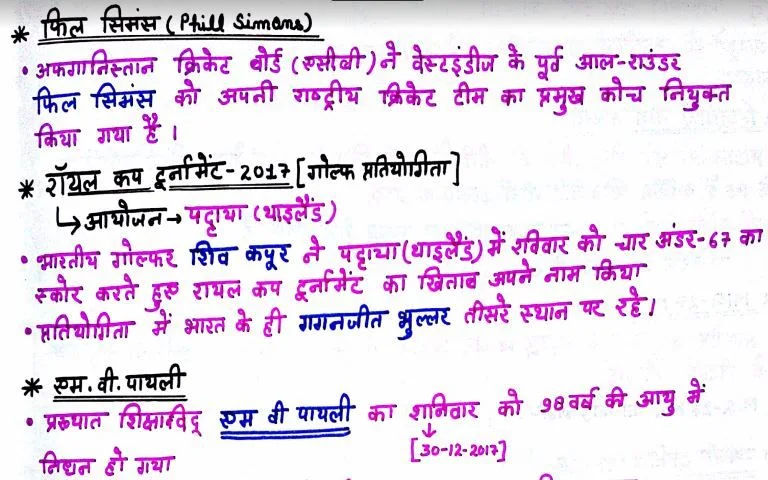 * फिल सिमंस (Phill Simons)
• अफगानिस्तान क्रिकेट बोर्ड (एसीबी) ने वेस्टइंडीज के पूर्व आल-राउंडर
फिल सिमंस को अपनी राष्ट्रीय क्रिकेट टीम का प्रमुख कोच नियुक्त
किया गया है।
* रॉयल कप टूर्नामेंट-2017 [गोल्फ प्रतियोगिता]
↳ आयोजन → पट्टाया (थाइलैंड)
• भारतीय गोल्फर शिव कपूर ने पट्टाया (थाइलैंड) में रविवार को चार अंडर-67 का
स्कोर करते हुए रायल कप टूर्नामेंट का खिताब अपने नाम किया
• प्रतियोगिता में भारत के ही गगनजीत भुल्लर तीसरे स्थान पर रहे।
* एम. वी. पायली
• प्रख्यात शिक्षाविद् एम वी पायली का शनिवार को 98 वर्ष की आयु में
[30-12-2017]
निधन हो गया